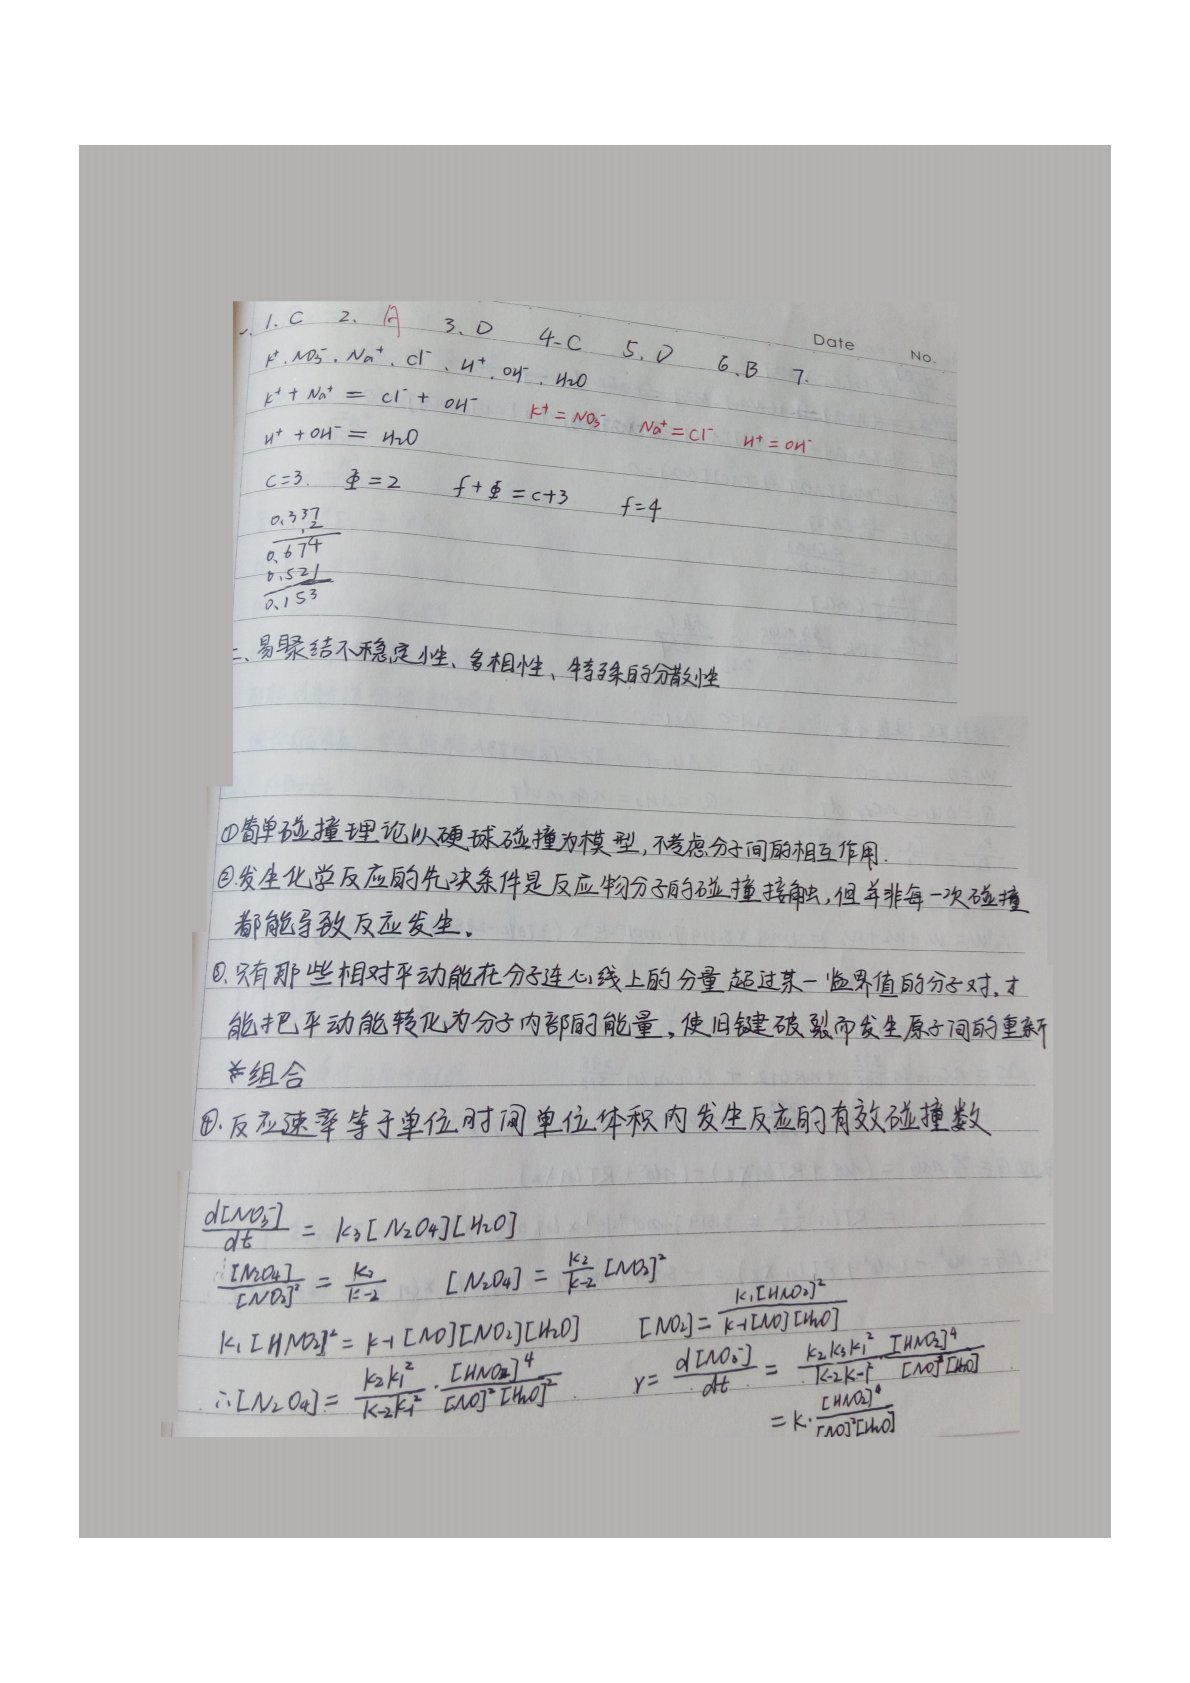 一、1. C 2. A 3. D 4. C 5. D 6. B 7.
Date No.
K⁺. NO₃⁻. Na⁺. Cl⁻. H⁺. OH⁻. H₂O
K⁺ + Na⁺ = Cl⁻ + OH⁻ K⁺ = NO₃⁻ Na⁺ = Cl⁻ H⁺ = OH⁻
H⁺ + OH⁻ = H₂O
C=3. Φ=2 f+Φ=C+3 f=4
0.337
.2
0.674
0.521
0.153
二、易聚结不稳定性、多相性、特殊的分散性
①简单碰撞理论以硬球碰撞为模型,不考虑分子间的相互作用.
②.发生化学反应的先决条件是反应物分子的碰撞接触,但并非每一次碰撞
都能导致反应发生.
③.只有那些相对平动能在分子连心线上的分量超过某一临界值的分子对,才
能把平动能转化为分子内部的能量,使旧键破裂而发生原子间的重新
组合
④.反应速率等于单位时间单位体积内发生反应的有效碰撞数
d[NO₃⁻]/dt = k₃[N₂O₄][H₂O]
[N₂O₄]/[NO₂]² = k₂/k₋₂ [N₂O₄] = k₂/k₋₂ [NO₂]²
k₁[HNO₂]² = k₋₁[NO][NO₂][H₂O] [NO₂] = k₁[HNO₂]²/k₋₁[NO][H₂O]
∴[N₂O₄] = k₂k₁²/k₋₂k₋₁² · [HNO₂]⁴/[NO]²[H₂O]² r = d[NO₃⁻]/dt = k₂k₃k₁²/k₋₂k₋₁² · [HNO₂]⁴/[NO]²[H₂O]
= k · [HNO₂]⁴/[NO]²[H₂O]